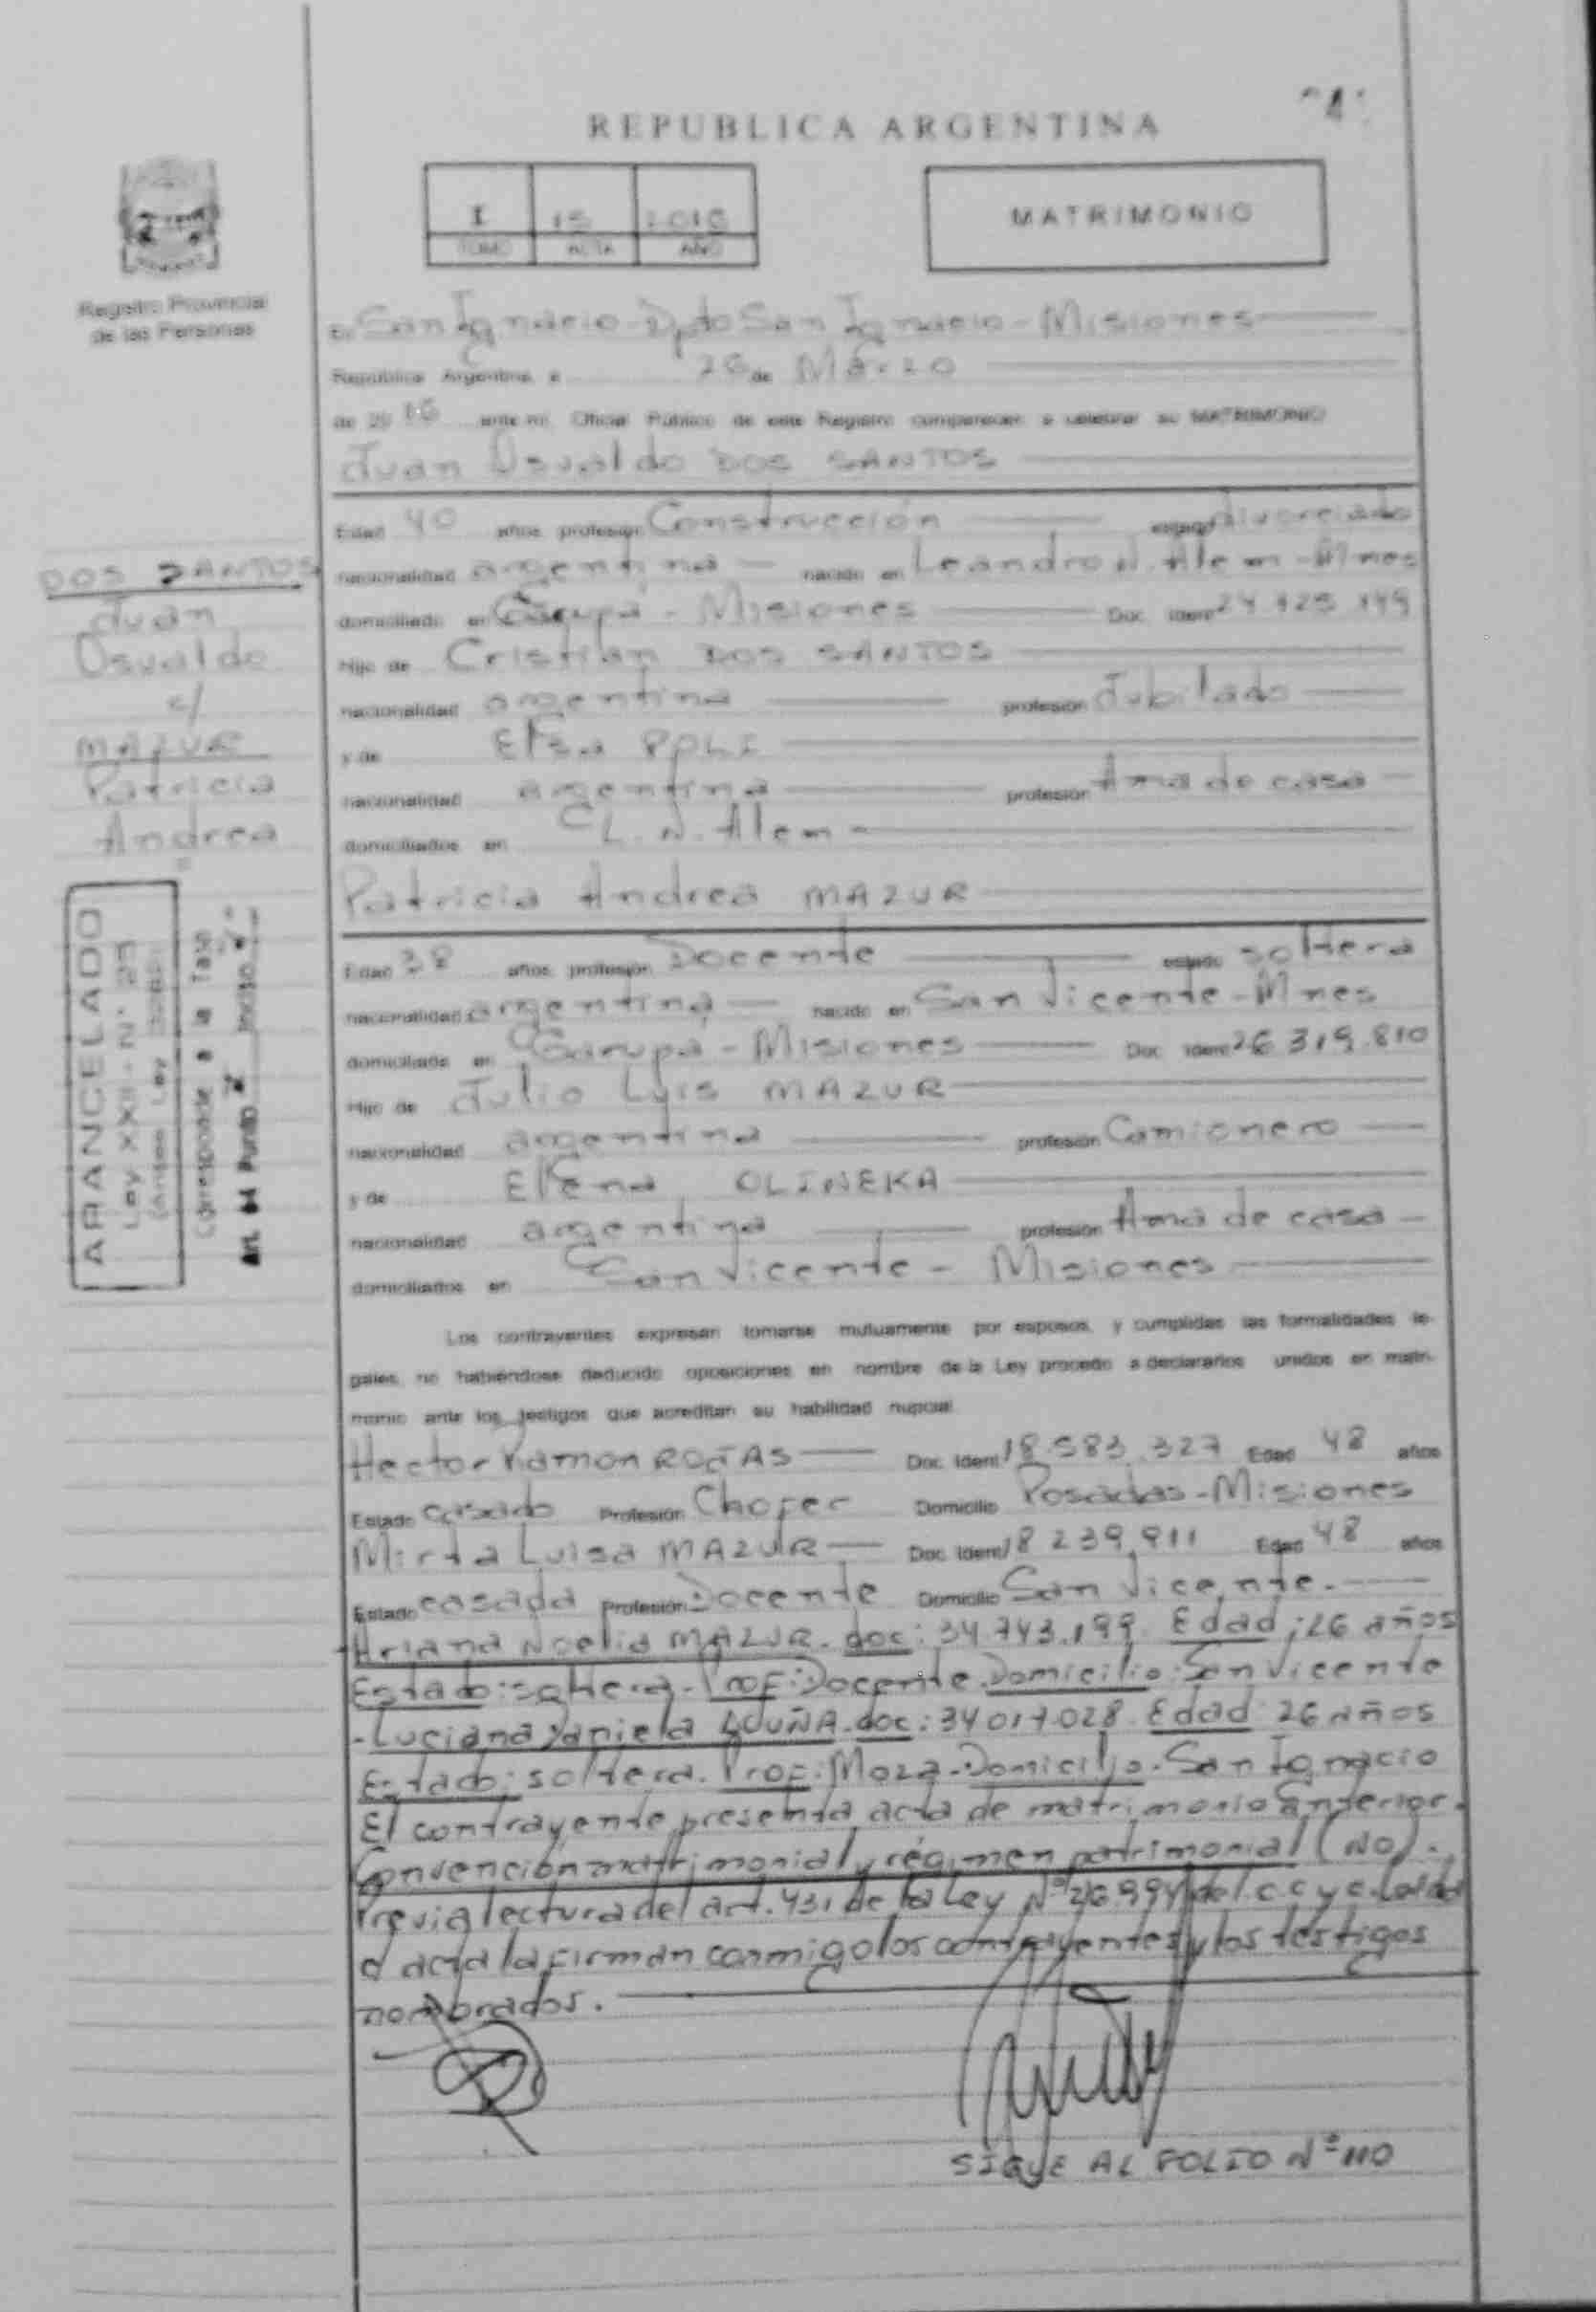 REPUBLICA ARGENTINA
I 15 2016
TOMO ACTA AÑO
MATRIMONIO
Registro Provincial
de las Personas
En San Ignacio - Dpto San Ignacio - Misiones
República Argentina a 26 de Marzo
de 20 16 ante mi Oficial Público de este Registro comparecen a celebrar su MATRIMONIO
Juan Osvaldo DOS SANTOS
Edad 40 años profesión Construcción estado divorciado
nacionalidad argentina nacido en Leandro N. Alem - Mnes
domiciliado en Garupá - Misiones Doc. Ident
Hijo de Cristian DOS SANTOS
nacionalidad argentina profesión Jubilado
y de Elsa
nacionalidad argentina profesión Ama de casa
domiciliados en L. N. Alem -
Patricia Andrea MAZUR
Edad 38 años profesión Docente estado soltera
nacionalidad argentina nacido en San Vicente - Mnes
domiciliado en Garupá - Misiones Doc. Ident 26 319.810
Hijo de Julio Luis MAZUR
nacionalidad argentina profesión Camionero
y de Elena OLINEKA
nacionalidad argentina profesión Ama de casa
domiciliados en San Vicente - Misiones
Los contrayentes expresan tomarse mutuamente por esposos, y cumplidas las formalidades le-
gales, no habiéndose deducido oposiciones en nombre de la Ley procedo a declararlos unidos en matri-
monio ante los testigos que acreditan su habilidad nupcial
Hector Ramon ROJAS Doc. Ident 18.583.327 Edad 48 años
Estado casado Profesión Chofer Domicilio Posadas - Misiones
Mirta Luisa MAZUR Doc. Ident 18 239.911 Edad 48 años
Estado casada Profesión Docente Domicilio San Vicente.
Ariana Noelia MAZUR. doc: 34.743.199. Edad: 26 años
Estado: soltera - Prof: Docente. Domicilio: San Vicente
- Luciana Daniela doc: 34 017.028. Edad: 26 años
Estado: soltera. Prof: Moza - Domicilio - San Ignacio
El contrayente presenta acta de matrimonio anterior.
Convención matrimonial y régimen patrimonial (NO).
Previa lectura del art. 431 de la Ley Nº 26.994 del C.C y C.
acta la firman conmigo los contrayentes y los testigos
nombrados.
SIGUE AL FOLIO Nº 110
DOS SANTOS
Juan
Osvaldo
c/
MAZUR
Patricia
Andrea
ARANCELADO
Ley XXII - N° 25
(Antes Ley
Corresponde a la Tasa
Art. 64 Punto 2 Inciso